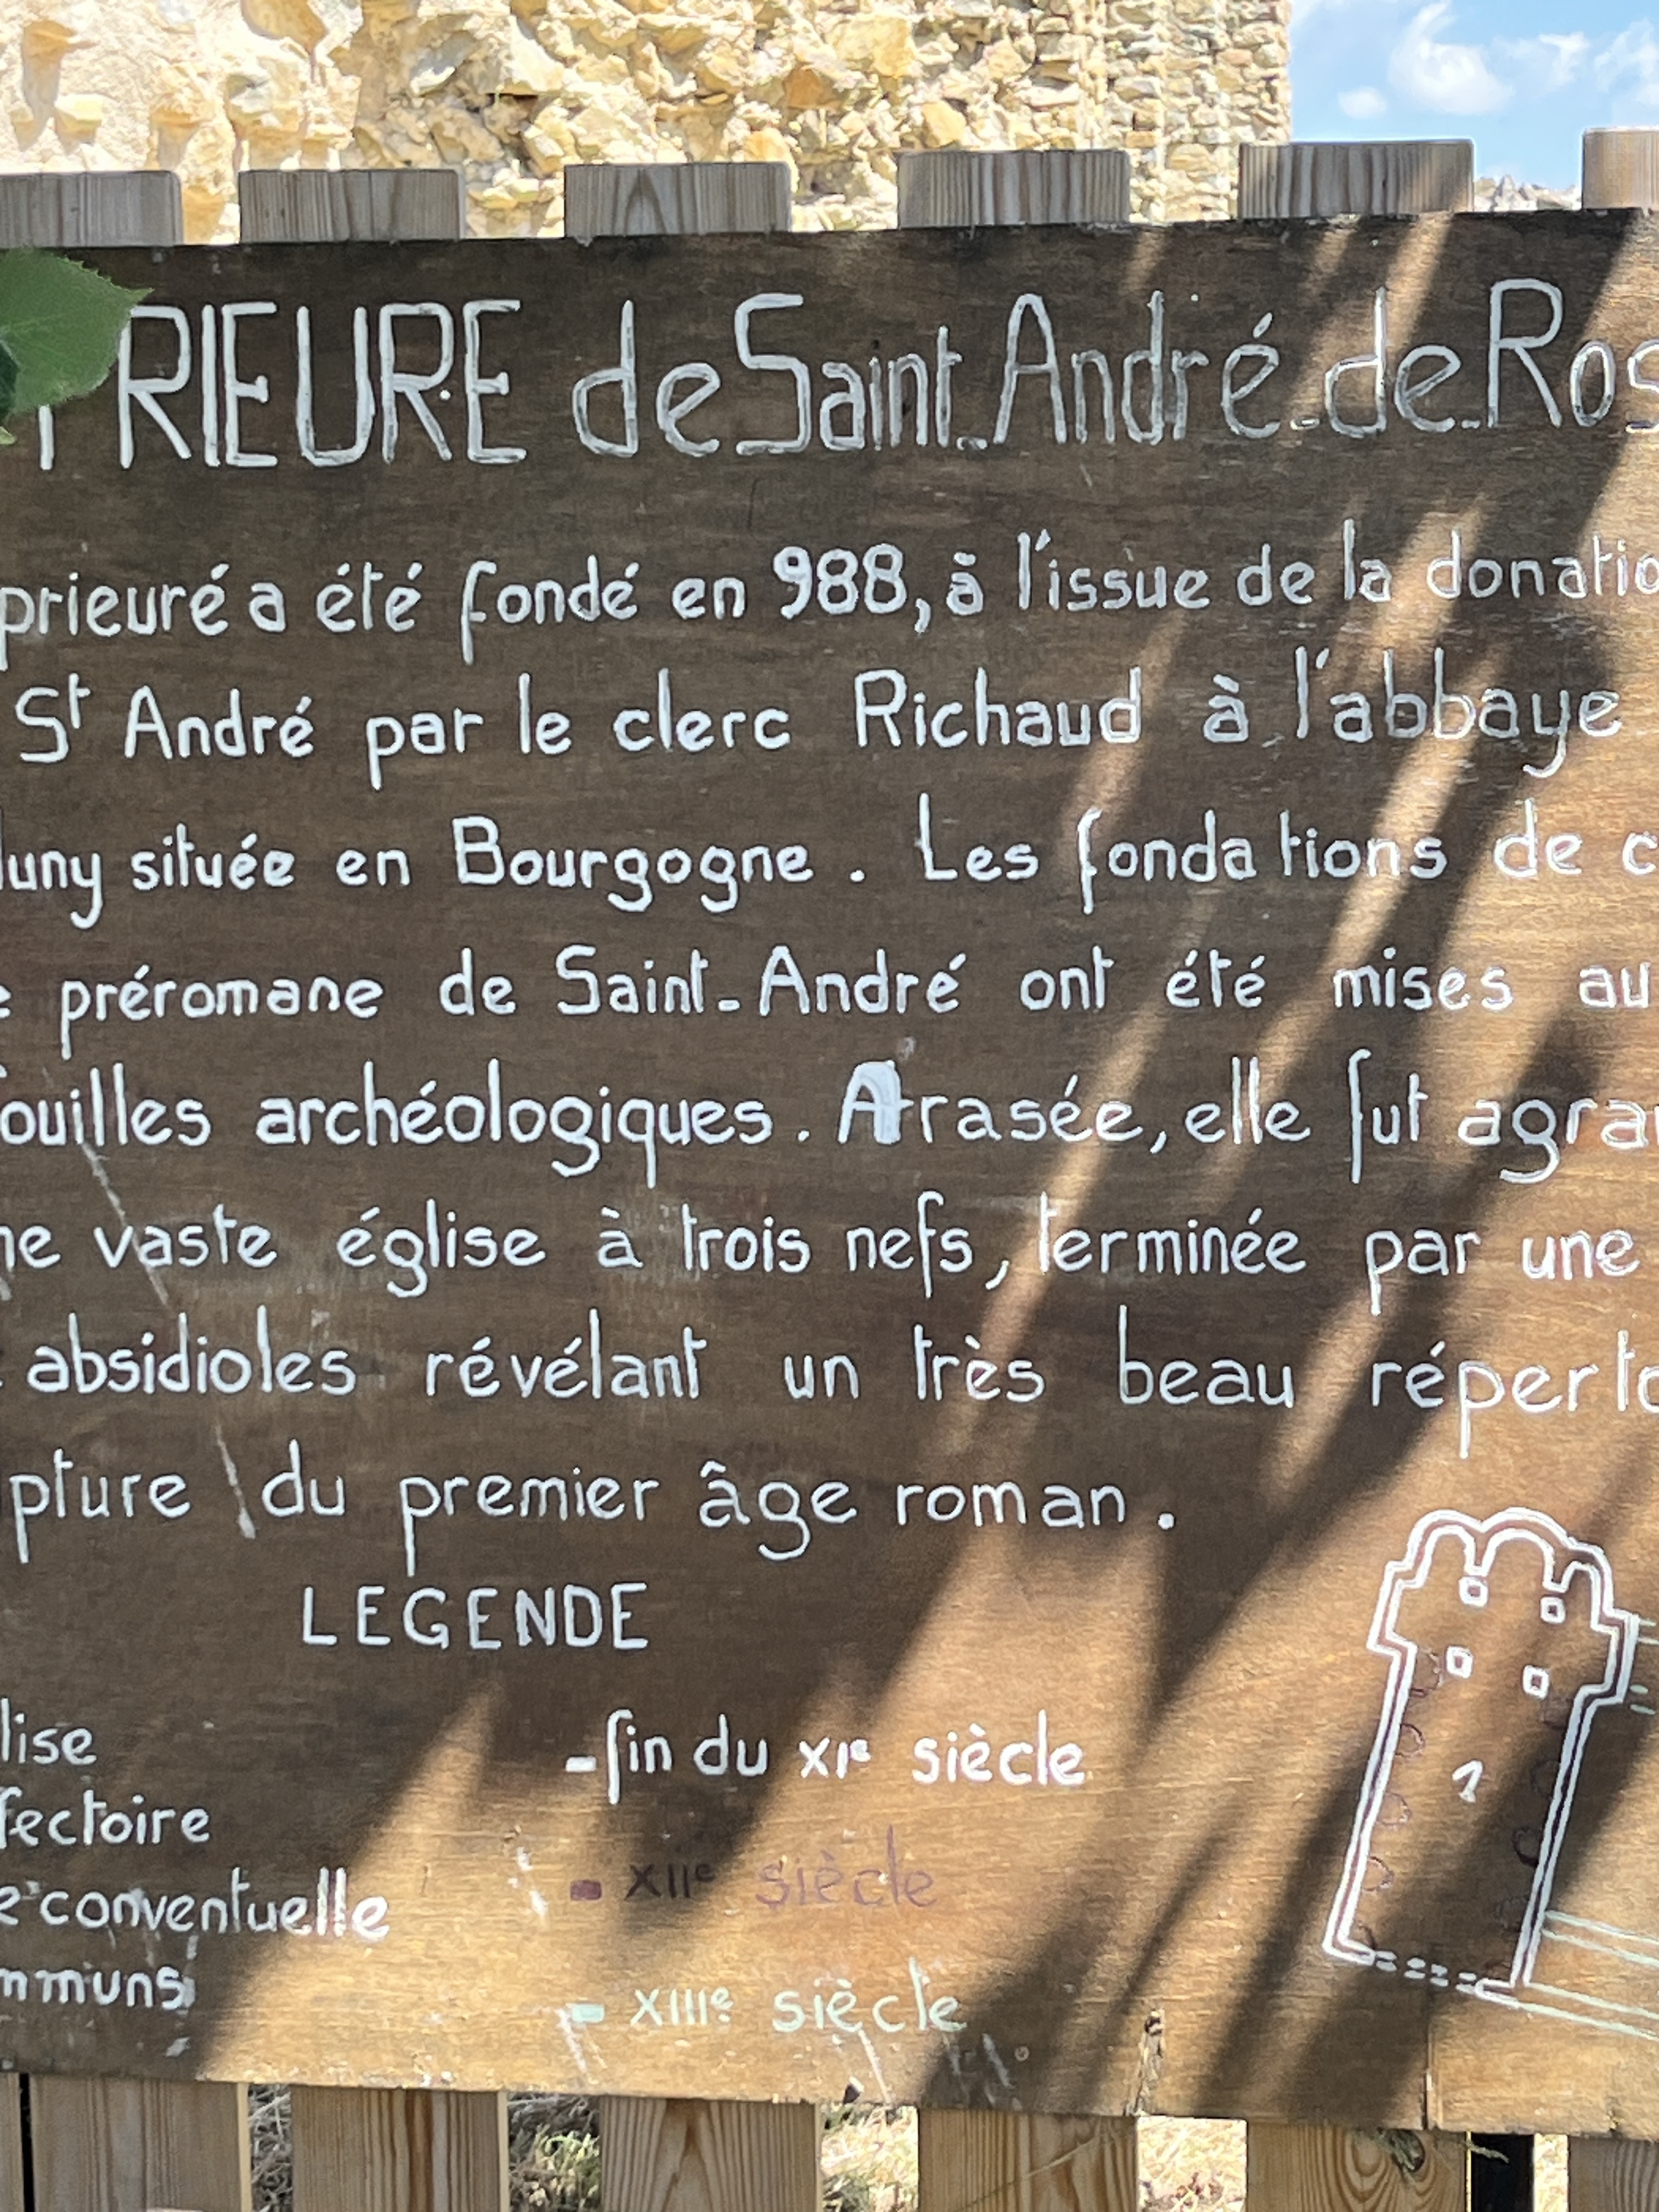 PRIEURE de Saint-André-de-Ros
prieuré a été fondé en 988, à l'issue de la donatio
St André par le clerc Richaud à l'abbaye
luny située en Bourgogne. Les fondations de c
e préromane de Saint-André ont été mises au
ouilles archéologiques. Arasée, elle fut agran
ne vaste église à trois nefs, terminée par une
absidioles révélant un très beau réperto
pture du premier âge roman.
LEGENDE
lise
fectoire
e conventuelle
mmuns
- fin du XIe siècle
- XIIe siècle
- XIIIe siècle
1